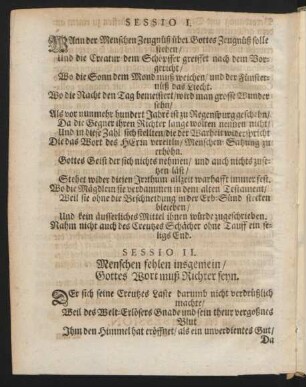 SESSIO I.
WAnn der Menschen Zeugnüß über Gottes Zeugnüß solle
stehen/
Und die Creatur dem Schöpffer greiffet nach dem Vor-
gericht/
Wo die Sonn dem Mond muß weichen/ und der Finster-
nüß das Liecht.
Wo die Nacht den Tag bemeistert/ wird man grosse Wunder
sehn/
Als vor nunmehr hundert Jahrē ist zu Regenspurg geschehn/
Da die Gegner ihren Richter lange wolten nennen nicht/
Und in diese Zahl sich stellten/ die der Warheit widerspricht
Die das Wort des HErrn vereitln/ Menschen Satzung zu
erhöhn.
Gottes Geist der sich nichts nehmen/ und auch nichts zuse-
hen läst/
Stehet wider diesen Irrthum allzeit warhafft immer fest,
Wo die Mägdlein sie verdammen in dem alten Testament/
Weil sie ohne die Beschneidung in der Erb-Sünd stecken
blieben/
Und kein äusserliches Mittel ihnen würde zugeschrieben.
Nahm nicht auch des Creutzes Schächer ohne Tauff ein se-
ligs End.
SESSIO II.
Menschen fehlen insgemein/
Gottes Wort muß Richter seyn.
DEr sich seine Creutzes Last darumb nicht verdrüßlich
machte/
Weil des Welt-Erlösers Gnade und sein theur vergoßnes
Blut
Ihm den Himmel hat eröffnet/ als ein unverdientes Gut/
Da